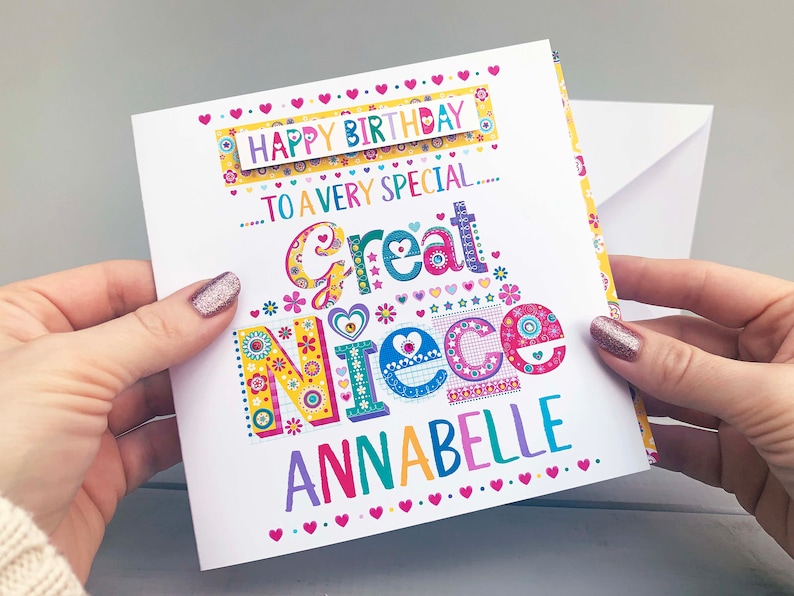 HAPPY BIRTHDAY
.....TO A VERY SPECIAL.....
Great
NIECE
ANNABELLE